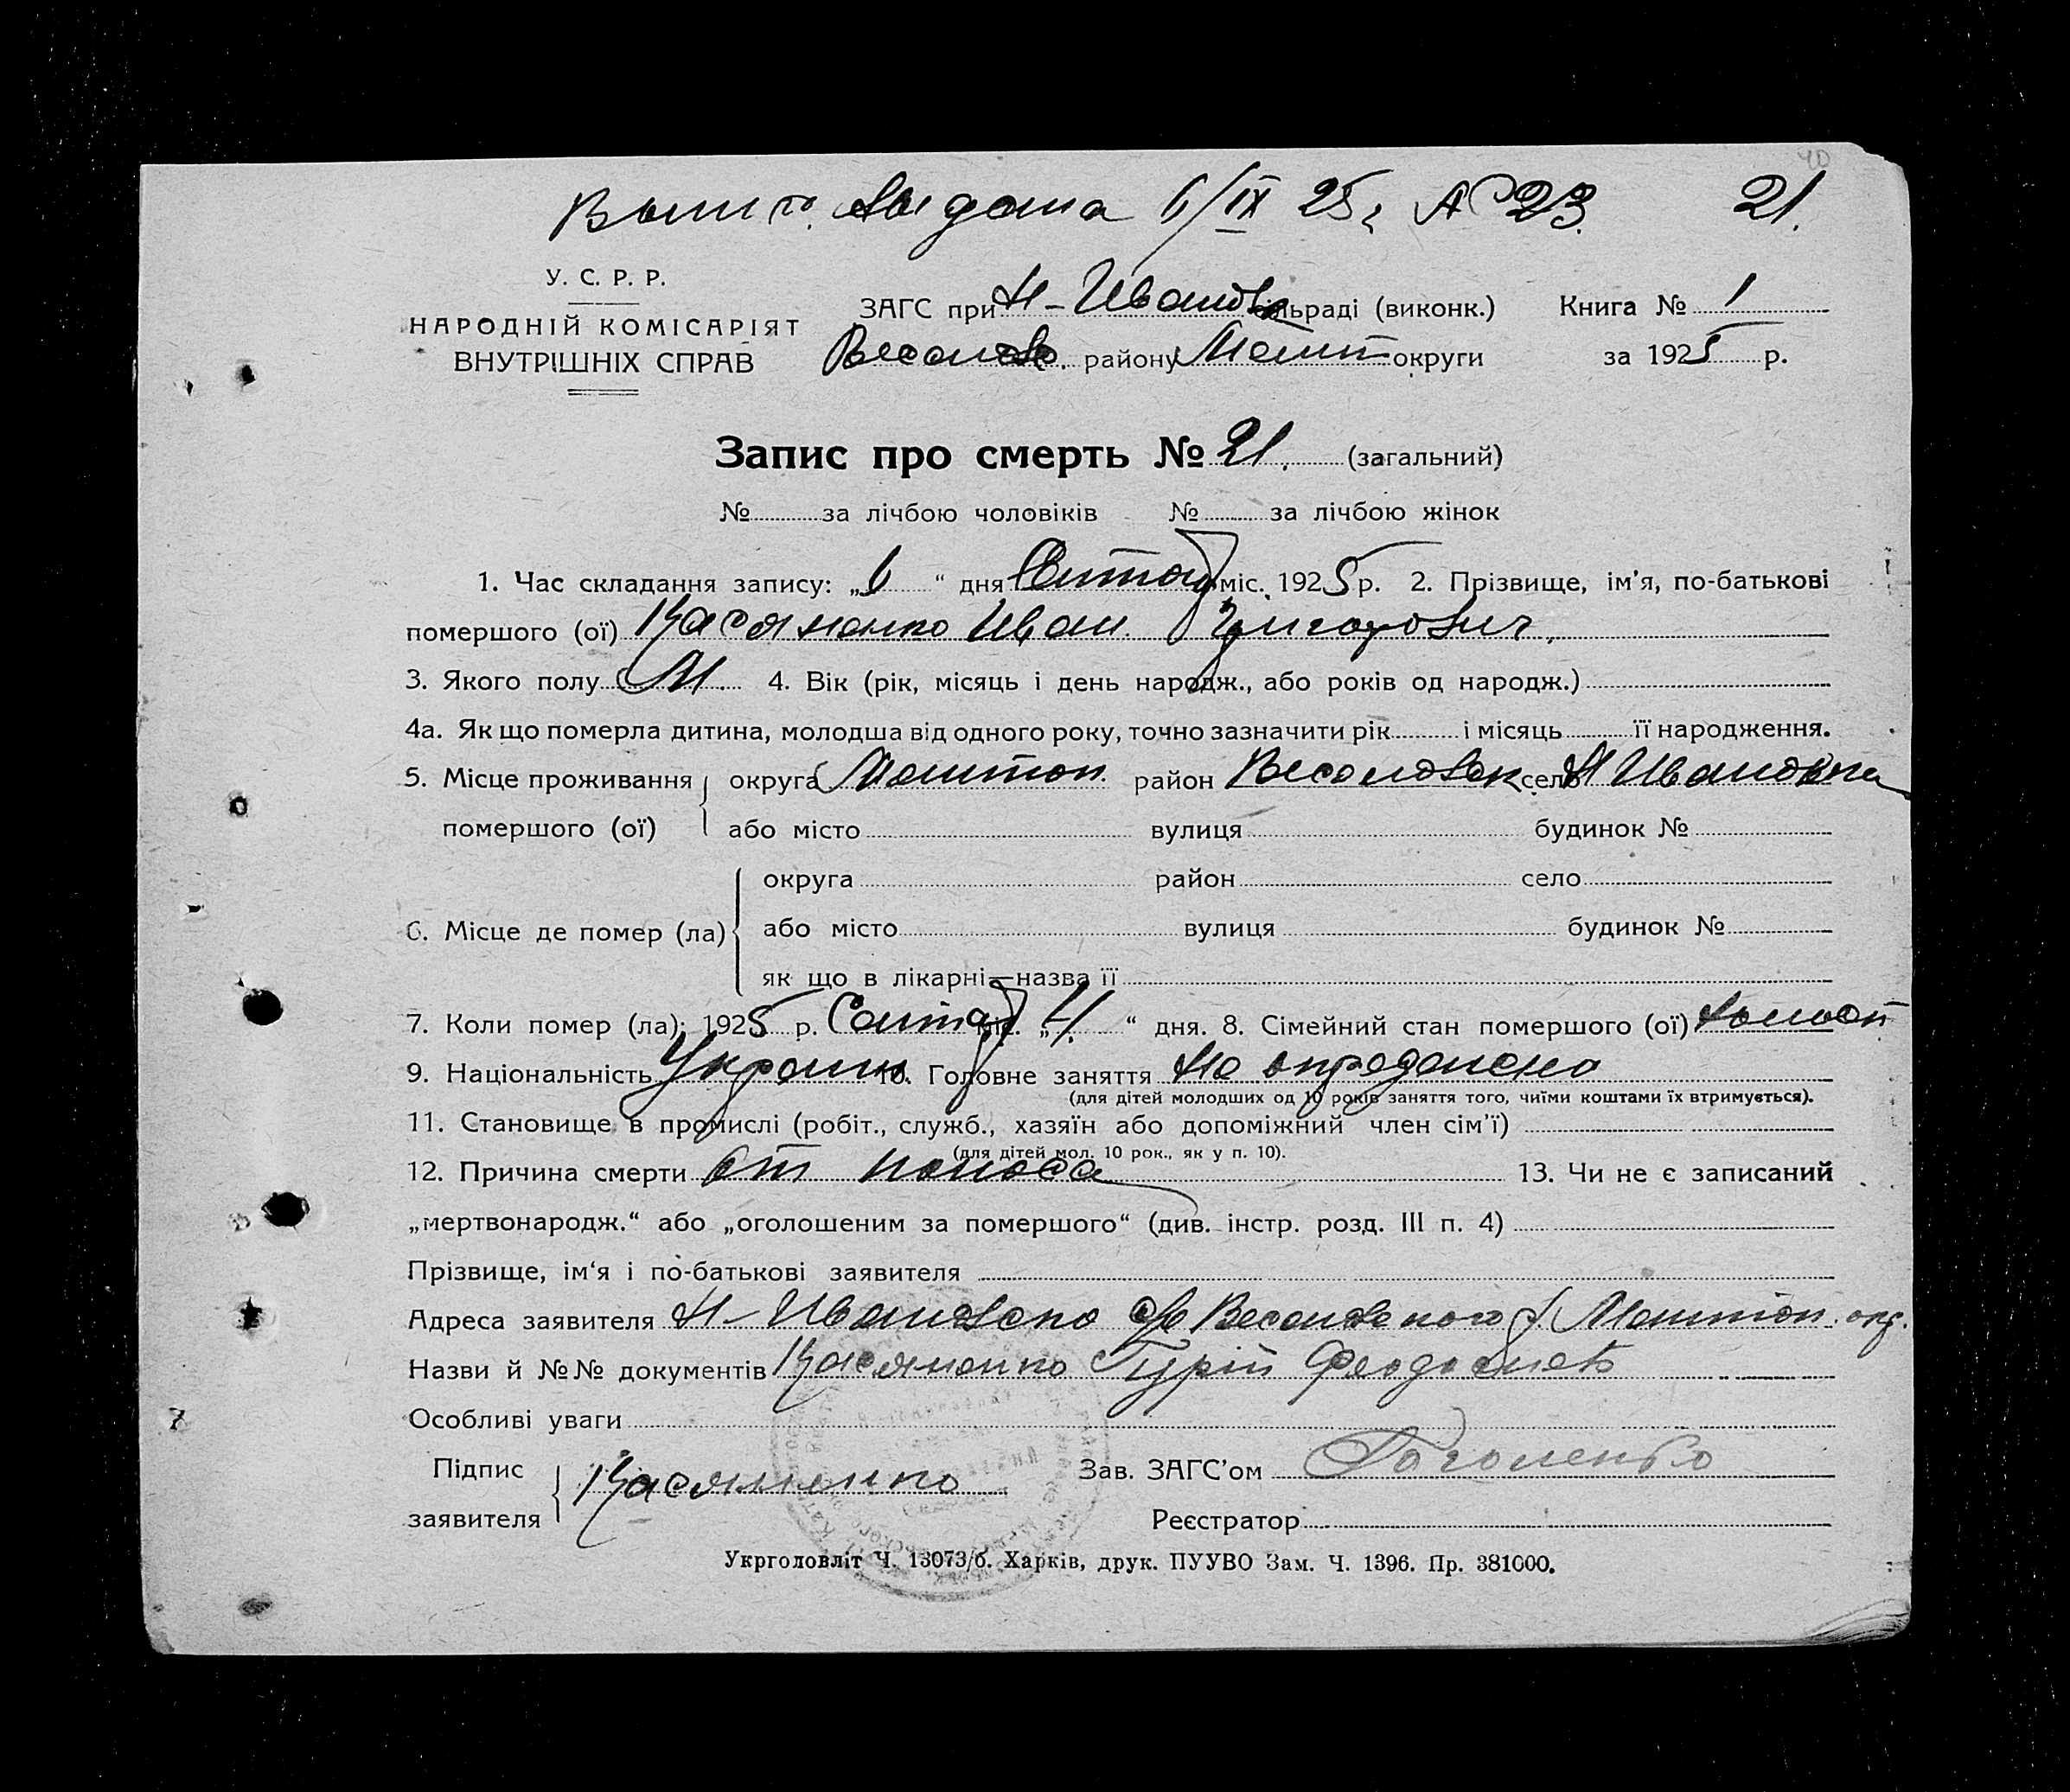 40
Выпись выдана 6/IX 25 г. № 23. 21.
У. С. Р. Р.
НАРОДНІЙ КОМІСАРІЯТ
ВНУТРІШНІХ СПРАВ
ЗАГС при Н-Ивановк сільраді (виконк.) Книга № 1
Веселовс. району Мелит округи за 1925 р.
Запис про смерть № 21. (загальний)
№ за лічбою чоловіків № за лічбою жінок
1. Час складання запису: „6“ дня Сентябр міс. 1925 р. 2. Прізвище, ім’я, по-батькові
помершого (ої) Касяненко Иван Григорович.
3. Якого полу М. 4. Вік (рік, місяць і день народж., або років од народж.)
4а. Як що померла дитина, молодша від одного року, точно зазначити рік і місяць її народження.
5. Місце проживання округа Мелитоп. район Веселовск село Н Ивановка
помершого (ої) або місто вулиця будинок №
округа район село
6. Місце де помер (ла) або місто вулиця будинок №
як що в лікарні—назва її
7. Коли помер (ла): 1925 р. Сентяб міс. „4.“ дня. 8. Сімейний стан помершого (ої)
9. Національність Украин. 10. Головне заняття Не определено
(для дітей молодших од 10 років заняття того, чиїми коштами їх втримується).
11. Становище в промислі (робіт., служб., хазяїн або допоміжний член сім’ї)
(для дітей мол. 10 рок., як у п. 10).
12. Причина смерти от поноса 13. Чи не є записаний
„мертвонародж.“ або „оголошеним за помершого“ (див. інстр. розд. III п. 4)
Прізвище, ім‘я і по-батькові заявителя
Адреса заявителя Н-Ивановка с/с Веселовского р. Мелитоп. окр.
Назви й №№ документів Касяненко Гурій Феодосиев
Особливі уваги
Підпис
заявителя Касяненко
Зав. ЗАГС’ом
Реєстратор
Укрголовліт Ч. 13073/б. Харків, друк. ПУУВО Зам. Ч. 1396. Пр. 381000.